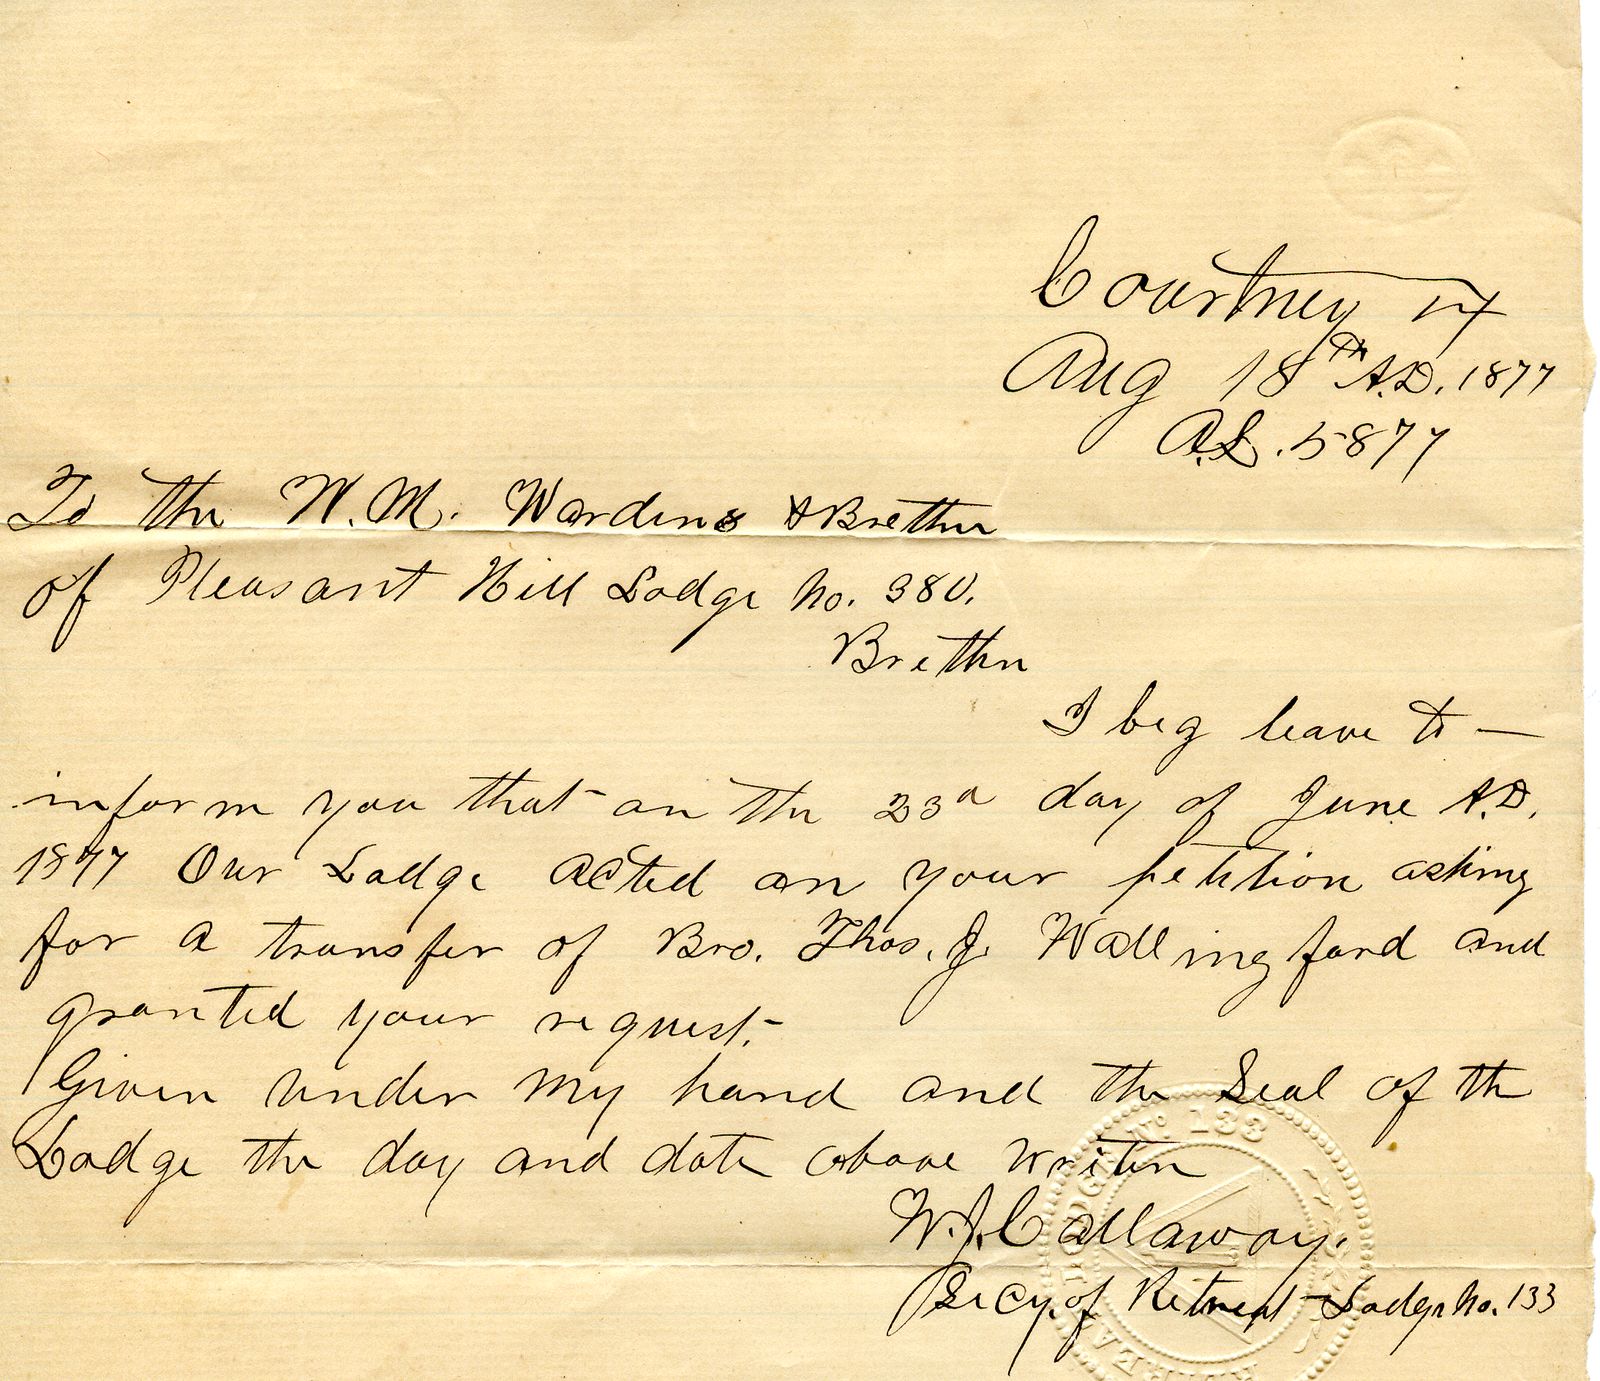 Courtney Tx
Aug 18th A.D. 1877
A.L. 5877
To the W. M. Wardens & Brethn
of Pleasant Hill Lodge No. 380.
Brethn
I beg leave to —
inform you that on the 23d day of June A.D.
1877 Our Lodge acted on your petition asking
for a transfer of Bro. Thos. J. Wallingford and
granted your request.
Given under my hand and the Seal of the
Lodge the day and date above writen
W. J. Callaway.
Secy. of Retreat Lodge No. 133
LODGE No 133